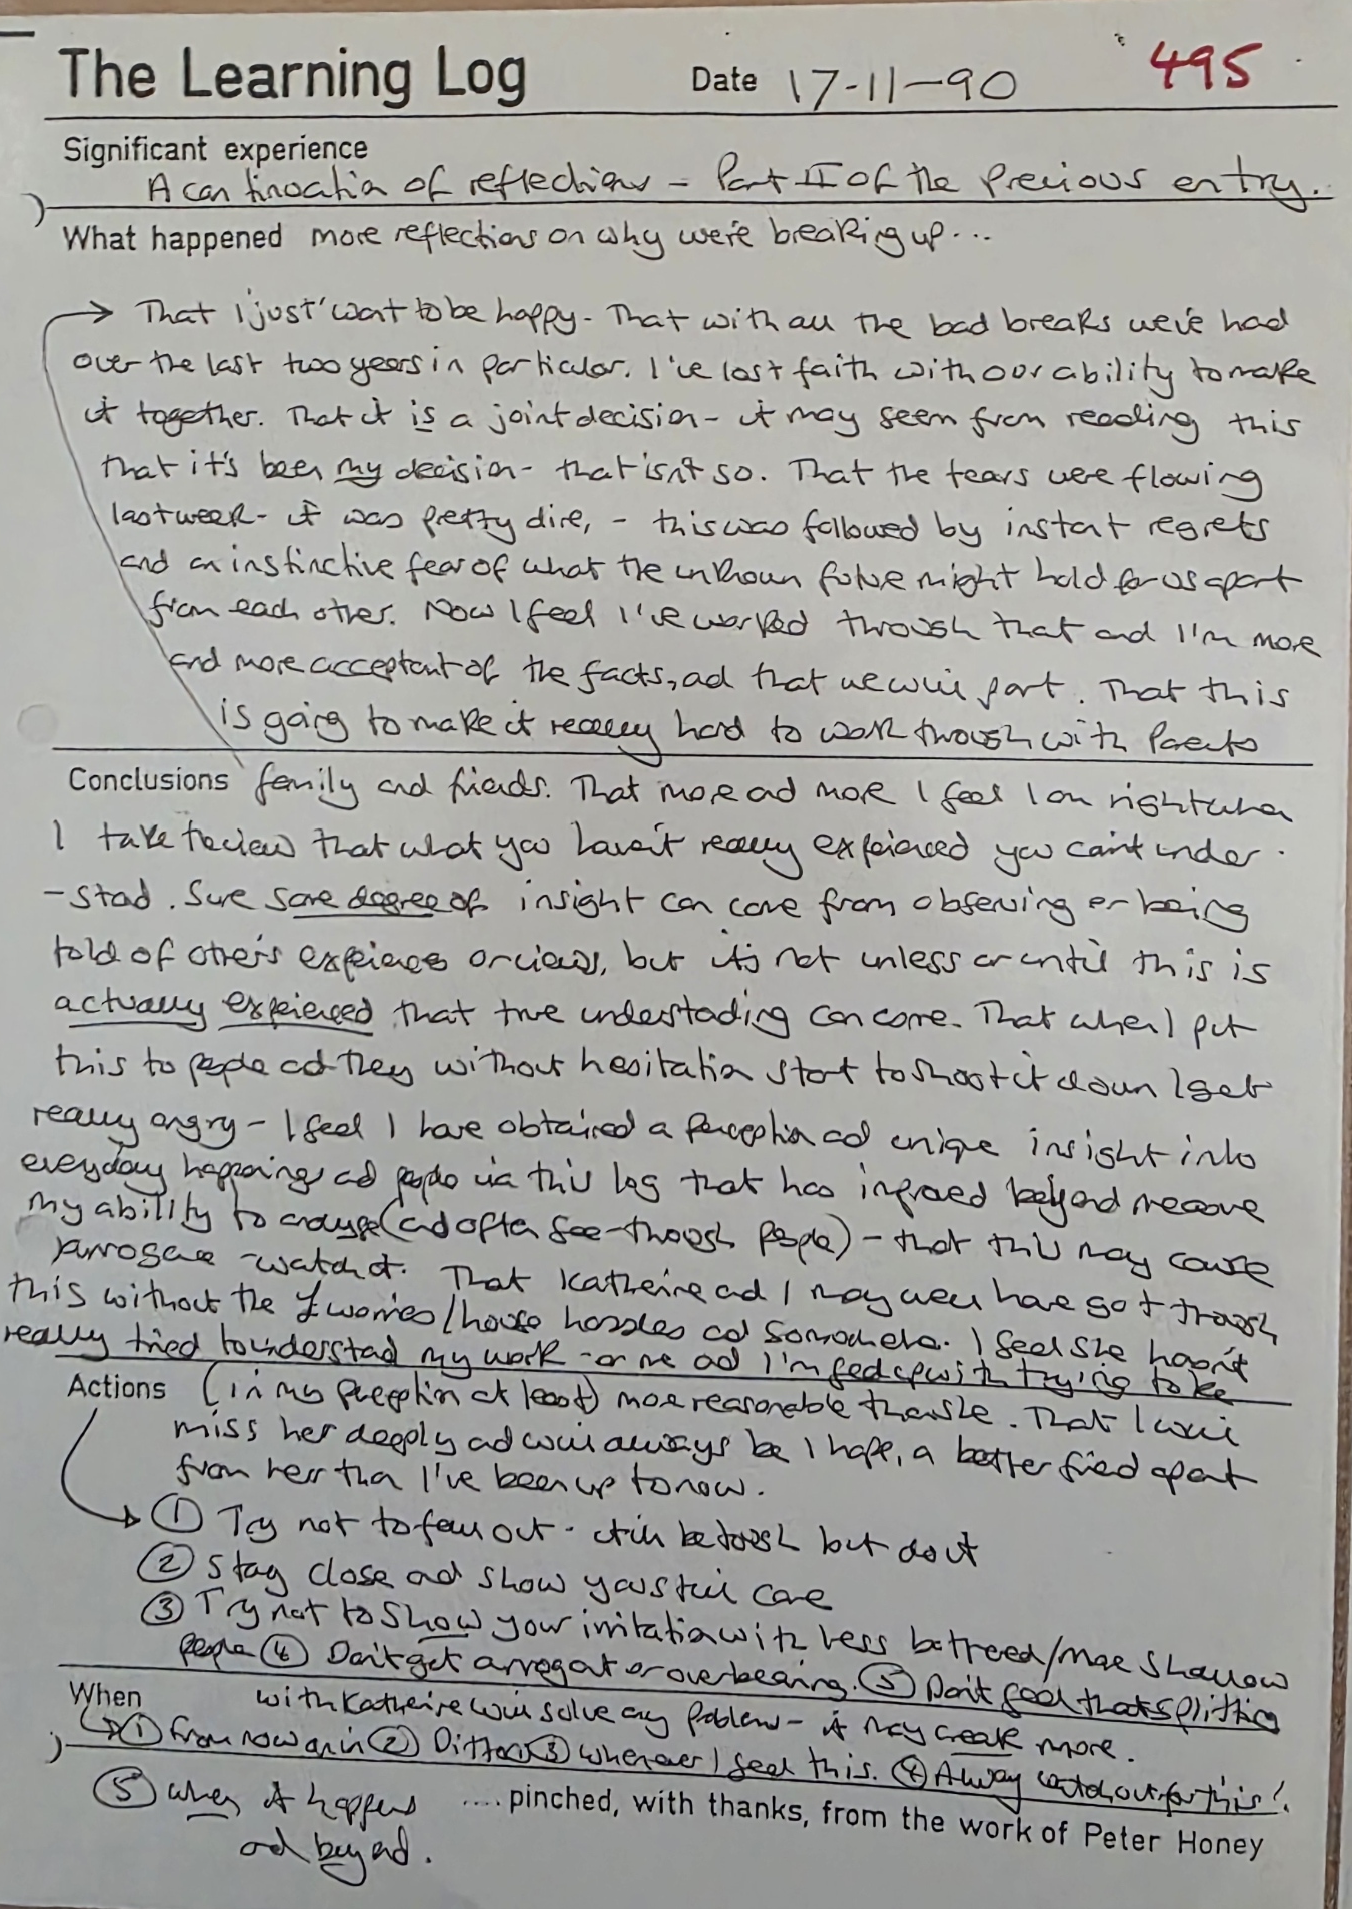 The Learning Log Date 17-11-90 495
Significant experience
A continuation of reflections - Part II of the previous entry.
What happened more reflections on why we're breaking up...
→ That I just want to be happy - That with all the bad breaks we've had
over the last two years in particular. I've lost faith with our ability to make
it together. That it is a joint decision - it may seem from reading this
that it's been my decision - that isn't so. That the tears were flowing
last week - it was pretty dire, - this was followed by instant regrets
and an instinctive fear of what the unknown future might hold for us apart
from each other. Now I feel I've worked through that and I'm more
and more acceptant of the facts, and that we will part. That this
is going to make it really hard to work through with Parents
Conclusions family and friends. That more and more I feel I am right when
I take the view that what you haven't really experienced you can't under-
-stand. Sure some degree of insight can come from observing or being
told of others experiences or views, but it's not unless or until this is
actually experienced that true understanding can come. That when I put
this to people and they without hesitation start to shoot it down I get
really angry - I feel I have obtained a perception and unique insight into
everyday happenings and people via this log that has improved beyond measure
my ability to analyse (and often see-through people) - that this may cause
arrogance - watch it. That Katherine and I may well have got through
this without the £ worries/house hassles and Somorela. I feel she hasn't
really tried to understand my work - or me and I'm fed up with trying to be
Actions (in my perception at least) more reasonable than she. That I will
miss her deeply and will always be I hope, a better friend apart
from her than I've been up to now.
→ ① Try not to fall out - it'll be tough but do it
② Stay close and show you still care
③ Try not to show your irritation with less bothered/more shallow
people ④ Don't get arrogant or overbearing. ⑤ Don't feel that splitting
When with Katherine will solve any problems - it may create more.
① From now on in ② Ditto ③ whenever I feel this. ④ Always watch out for this!
⑤ When it happens .... pinched, with thanks, from the work of Peter Honey
and beyond.